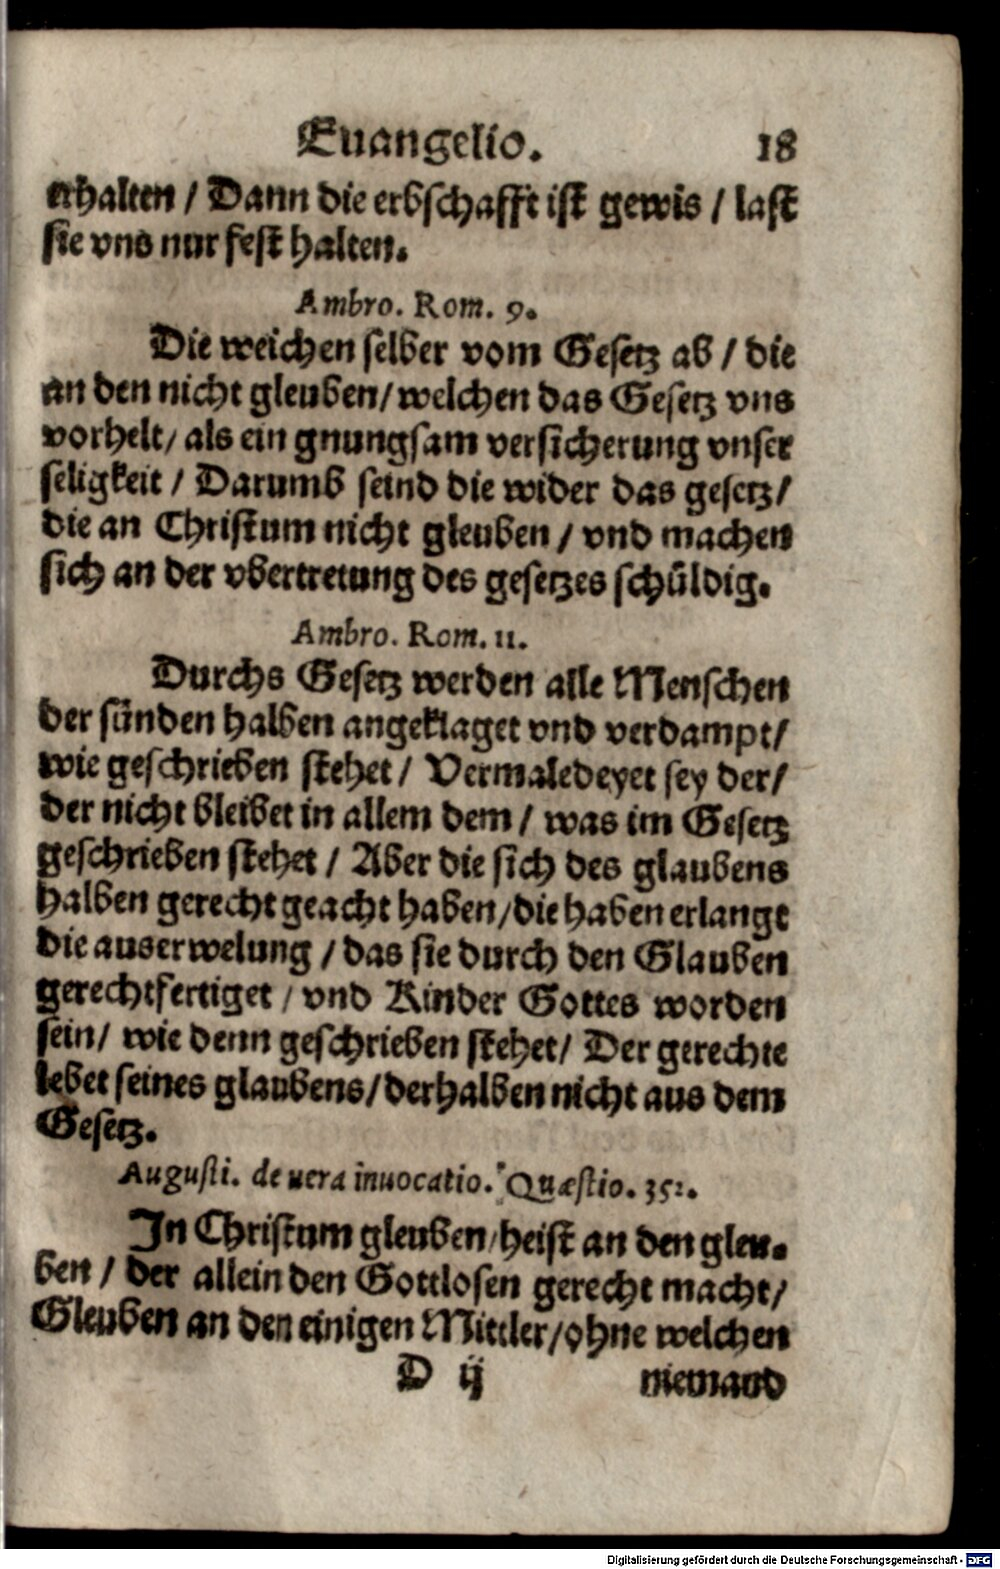 Euangelio. 18
erhalten / Dann die erbschafft ist gewis / last
sie vns nur fest halten.
Ambro. Rom. 9.
Die weichen selber vom Gesetz ab / die
an den nicht gleuben / welchen das Gesetz vns
vorhelt / als ein gnungsam versicherung vnser
seligkeit / Darumb seind die wider das gesetz /
die an Christum nicht gleuben / vnd machen
sich an der vbertretung des gesetzes schüldig.
Ambro. Rom. 11.
Durchs Gesetz werden alle Menschen
der sünden halben angeklaget vnd verdampt /
wie geschrieben stehet / Vermaledeyet sey der /
der nicht bleibet in allem dem / was im Gesetz
geschrieben stehet / Aber die sich des glaubens
halben gerecht geacht haben / die haben erlangt
die auserwelung / das sie durch den Glauben
gerechtfertiget / vnd Kinder Gottes worden
sein / wie denn geschrieben stehet / Der gerechte
lebet seines glaubens / derhalben nicht aus dem
Gesetz.
Augusti. de uera inuocatio. Quæstio. 352.
In Christum gleuben / heist an den gleu-
ben / der allein den Gottlosen gerecht macht /
Gleuben an den einigen Mittler / ohne welchen
D ij niemand
Digitalisierung gefördert durch die Deutsche Forschungsgemeinschaft - DFG